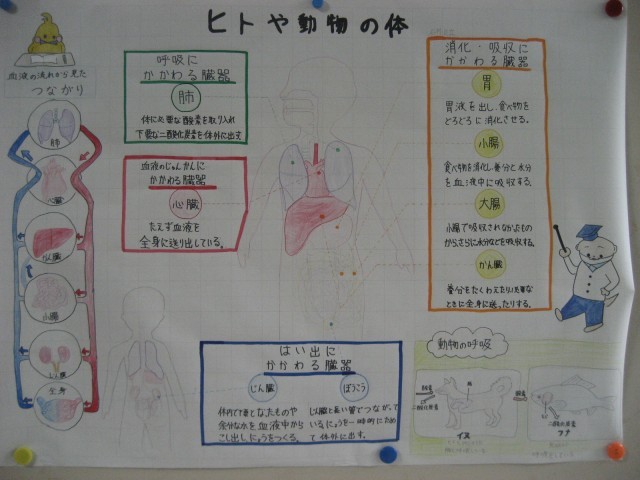 ヒトや動物の体
血液の流れから見た
つながり
肺
心臓
かん臓
小腸
全身
呼吸に
かかわる臓器
肺
体に必要な酸素を取り入れ
不要な二酸化炭素を体外に出す
血液のじゅんかんに
かかわる臓器
心臓
たえず血液を
全身に送り出している。
消化・吸収に
かかわる臓器
胃
胃液を出し、食べ物を
どろどろに消化させる。
小腸
食べ物を消化し、養分と水分
を血液中に吸収する。
大腸
小腸で吸収されなかったもの
からさらに水分などを吸収する。
かん臓
養分をたくわえたり、必要な
ときに全身に送ったりする。
はい出に
かかわる臓器
じん臓
体内で不要となったものや
余分な水を血液中から
こし出し、にょうをつくる。
ぼうこう
じん臓と長い管でつながって
いる。にょうを一時的にため
て体外に出す。
動物の呼吸
酸素
二酸化炭素
肺
イヌ
二酸化炭素
フナ